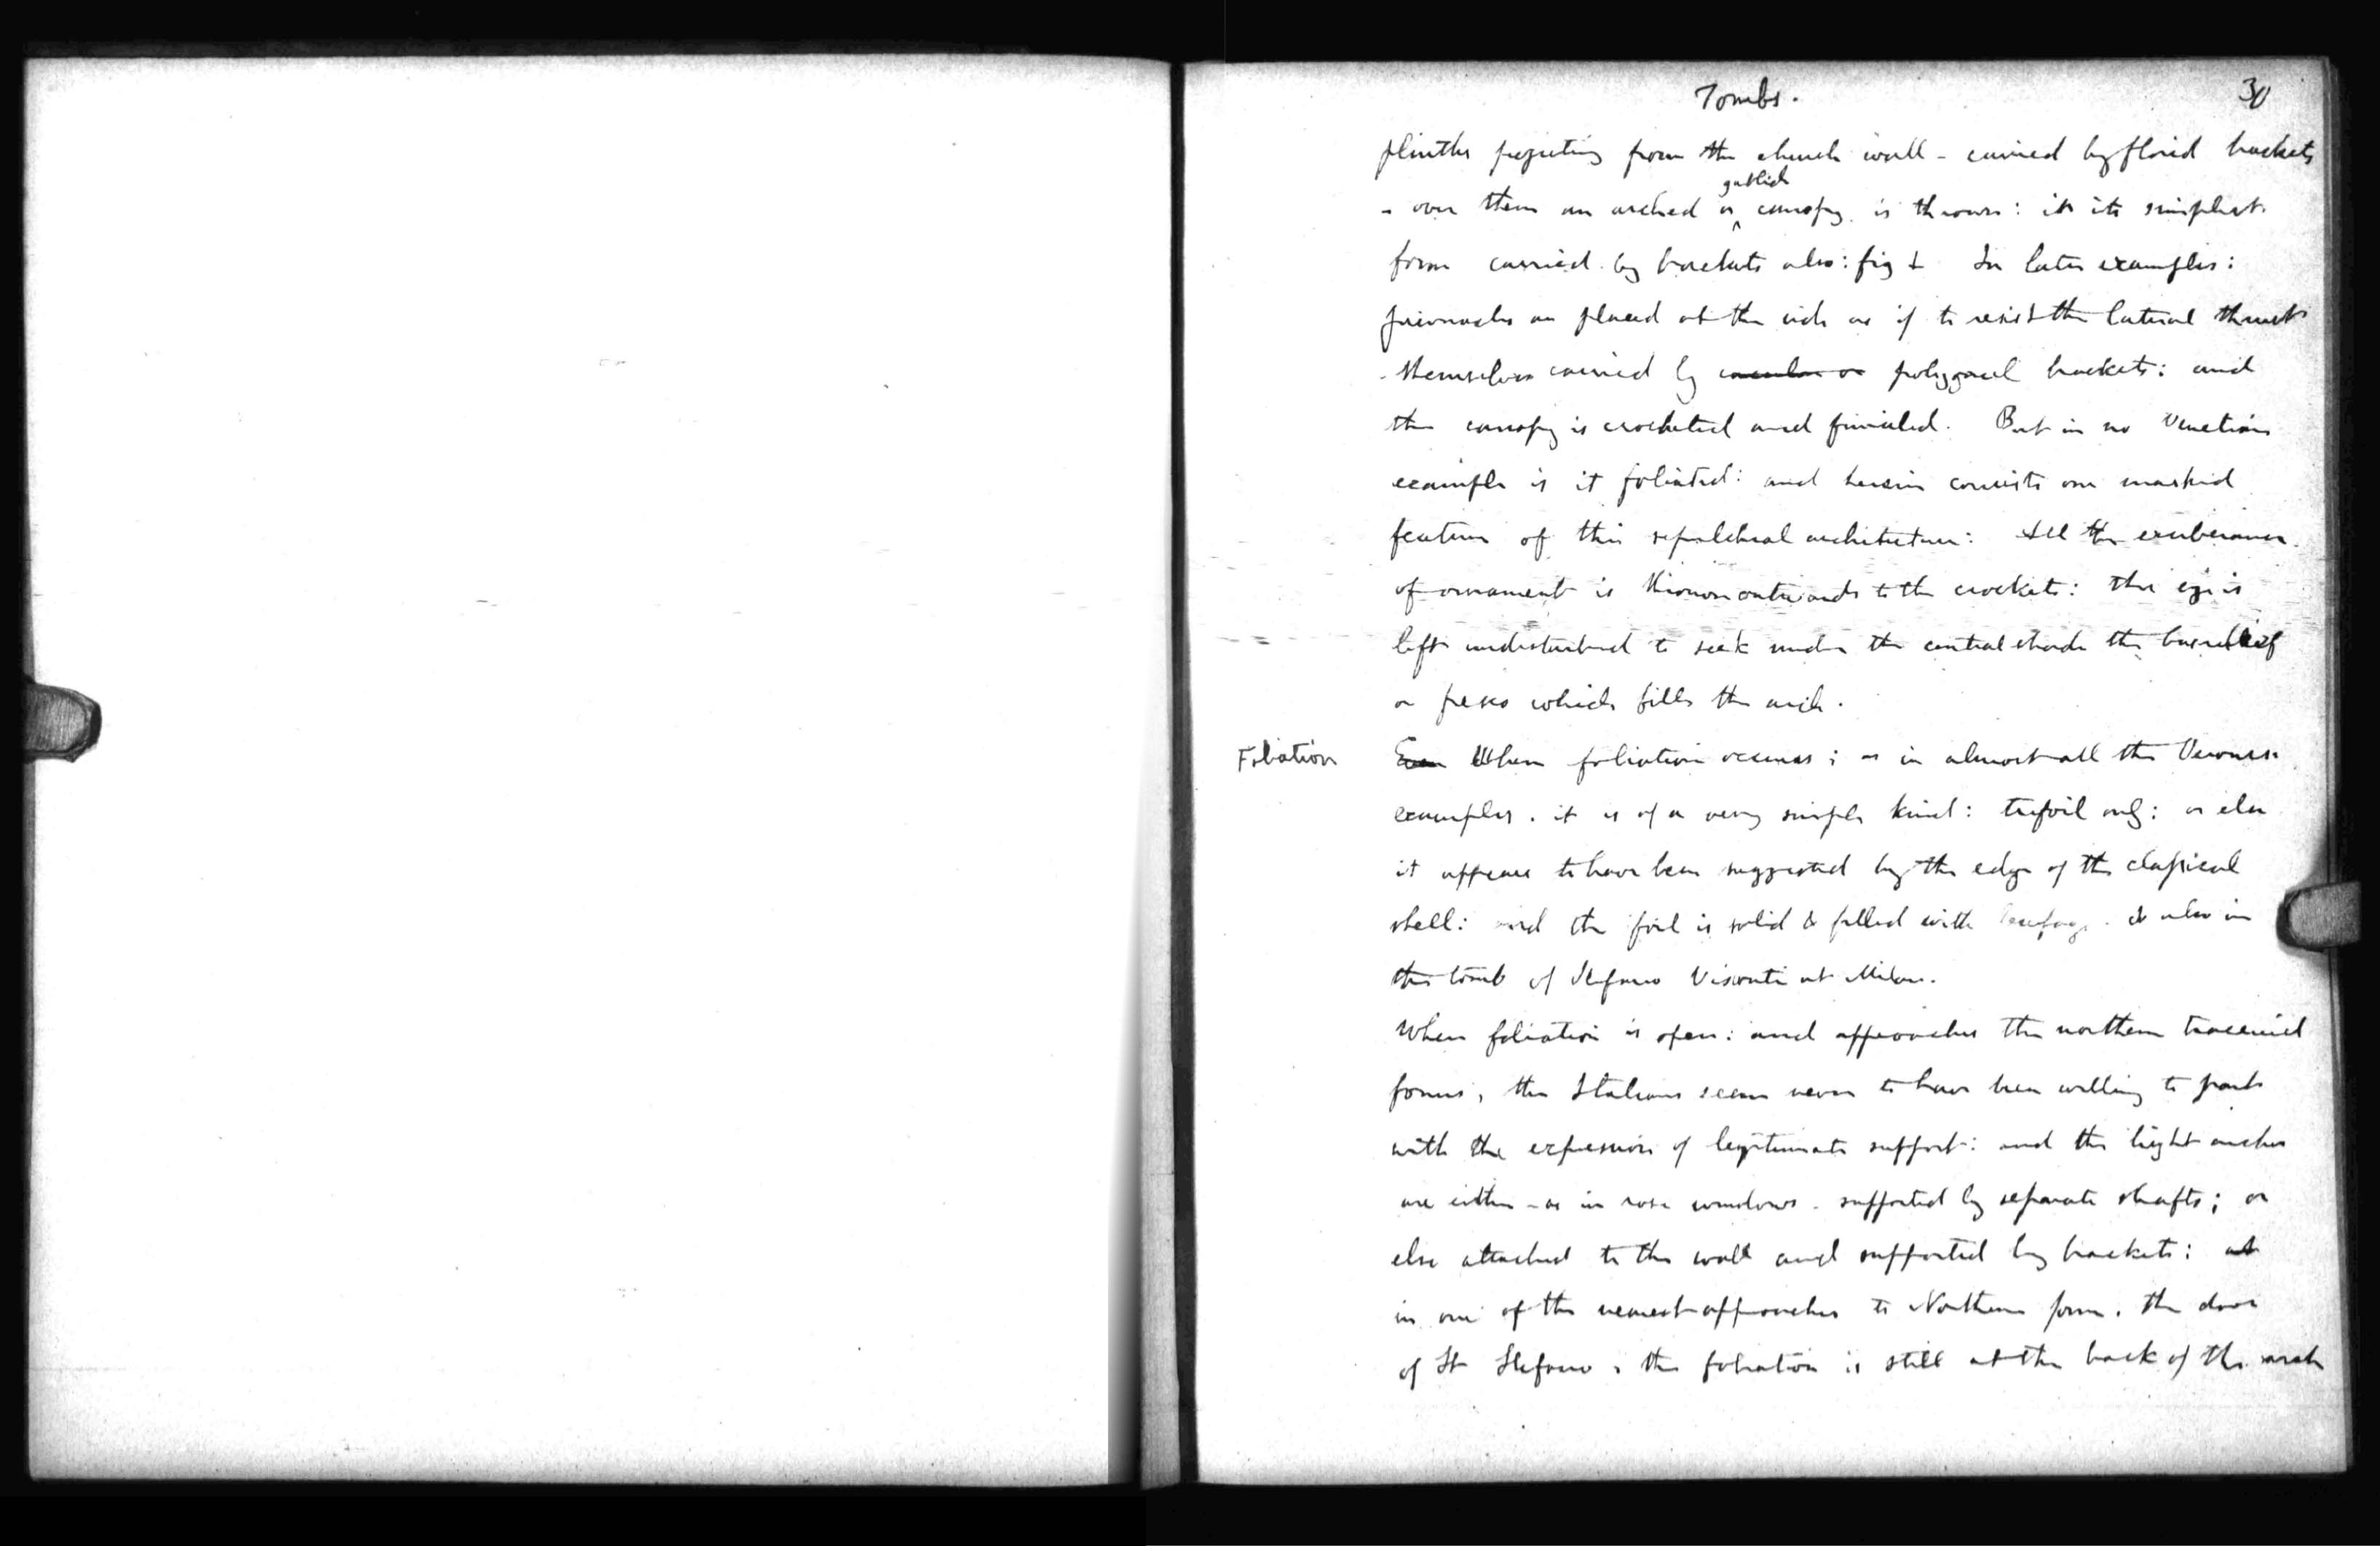 Tombs.
30
plinths projecting from the church wall - carried by florid brackets
- over them an arched or gabled canopy is thrown: in its simplest
form carried by brackets also: fig 1 In later examples:
pinnacles are placed at the side as if to resist the lateral thrust
- themselves carried by polygonal brackets: and
the canopy is crocketed and finialed. But in no Venetian
example is it foliated: and herein consists one marked
feature of this sepulchral architecture: All the exuberance
of ornament is thrown outwards to the crockets: the eye is
left undisturbed to seek under the central shade the basrelief
or fresco which fills the arch.
Foliation
Even When foliation occurs; as in almost all the Verones
examples. it is of a very simple kind: trefoil only: or else
it appears to have been suggested by the edge of the classical
shell: and the foil is solid & filled with leafage. So also in
the tomb of Stefano Visconti at Milan.
When foliation is open: and approaches the northern traceried
forms, the Italians seem never to have been willing to part
with the expression of legitimate support: and the light arches
are either - as in rose windows - supported by separate shafts; or
else attached to the wall and supported by brackets: at
in one of the nearest approaches to Northern form, the door
of St Stefano, the foliation is still at the back of the arch